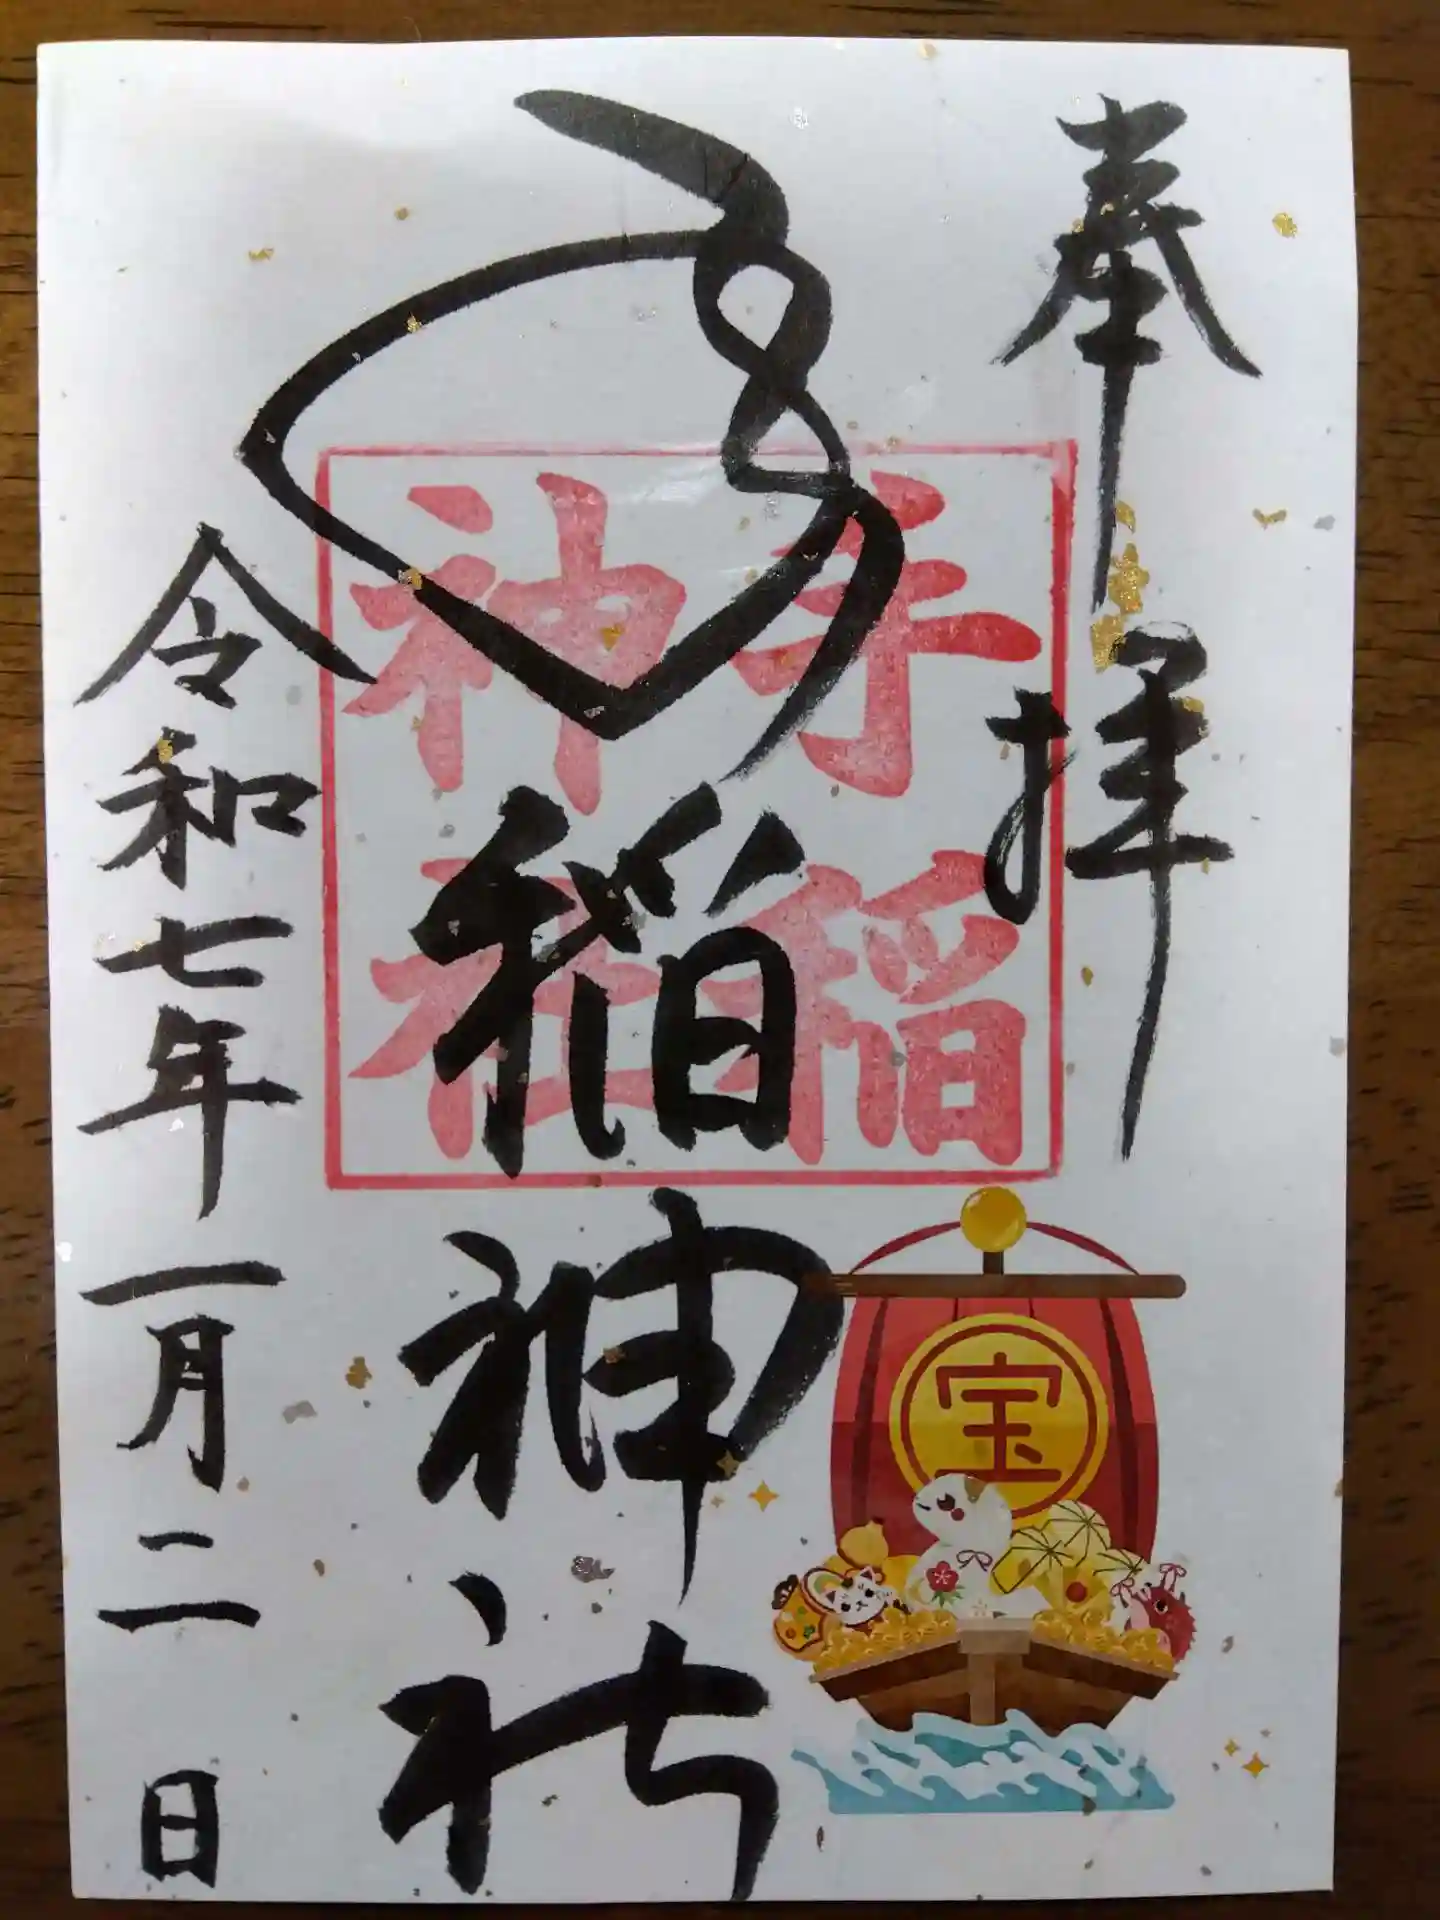 奉拝
手稲神社
手稲
神社
令和七年一月二日
宝